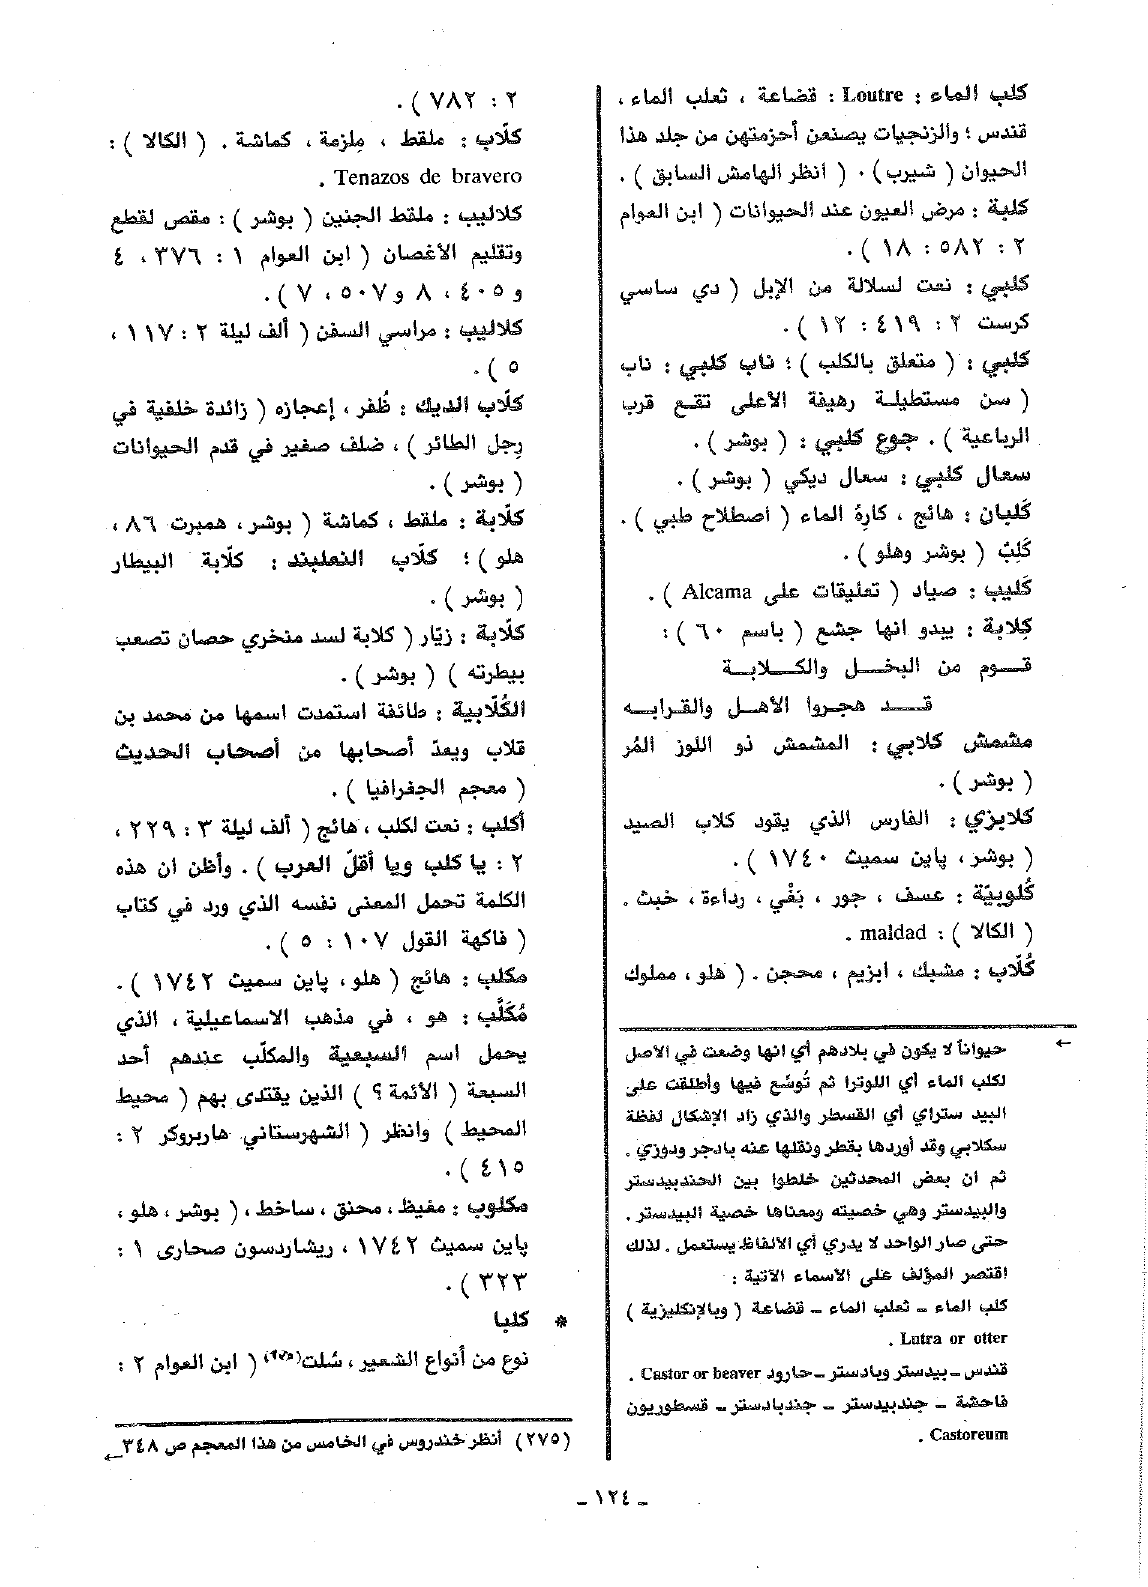 كلب الماء : Loutre : قضاعة ، ثعلب الماء ،
قندس ؛ والزنجيات يصنعن أحزمتهن من جلد هذا
الحيوان ( شيرب ) . ( أنظر الهامش السابق ) .
كلبة : مرض العيون عند الحيوانات ( ابن العوام
٢ : ٥٨٢ : ١٨ ) .
كلبي : نعت لسلالة من الإبل ( دي ساسي
كرست ٢ : ٤١٩ : ١٢ ) .
كلبي : ( متعلق بالكلب ) ؛ ناب كلبي : ناب
( سن مستطيلة رهيفة الأعلى تقع قرب
الرباعية ) . جوع كلبي : ( بوشر ) .
سعال كلبي : سعال ديكي ( بوشر ) .
كَلْبان : هائج ، كارِهُ الماء ( أصطلاح طبي ) .
كَلِبٌ ( بوشر وهلو ) .
كَليب : صياد ( تعليقات على Alcama ) .
كِلابة : يبدو انها جشع ( باسم ٦٠ ) :
قـــوم من البخـــل والكـــلابـــة
قـــد هجروا الأهـل والقـرابـه
مشمش كلابي : المشمش ذو اللوز المُر
( بوشر ) .
كلابزي : الفارس الذي يقود كلاب الصيد
( بوشر ، پاين سميث ١٧٤٠ ) .
كُلوبيّة : عسف ، جور ، بَغْي ، رداءة ، خبث .
( الكالا ) : maldad .
كُلّاب : مشبك ، ابزيم ، محجن . ( هلو ، مملوك
←
حيواناً لا يكون في بلادهم أي انها وضعت في الأصل
لكلب الماء أي اللوترا ثم تُوسّع فيها وأطلقت على
البيد ستراي أي القسطر والذي زاد الإشكال لفظة
سكلابي وقد أوردها بقطر ونقلها عنه بادجر ودوزي .
ثم ان بعض المحدثين خلطوا بين الجندبيدستر
والبيدستر وهي خصيته ومعناها خصية البيدستر .
حتى صار الواحد لا يدري أي الألفاظ يستعمل . لذلك
اقتصر المؤلف على الأسماء الآتية :
كلب الماء – ثعلب الماء – قضاعة ( وبالإنكليزية )
Lutra or otter .
قندس – بيدستر وبادستر – حارود Castor or beaver .
فاحشة – جندبيدستر – جندبادستر – قسطوريون
Castoreum .
٢ : ٧٨٢ ) .
كلّاب : ملقط ، مِلزمة ، كماشة . ( الكالا ) :
Tenazos de bravero .
كلاليب : ملقط الجنين ( بوشر ) : مقص لقطع
وتقليم الأغصان ( ابن العوام ١ : ٣٧٦ ، ٤
و ٤٠٥ ، ٨ و ٥٠٧ ، ٧ ) .
كلاليب : مراسي السفن ( ألف ليلة ٢ : ١١٧ ،
٥ ) .
كلّاب الديك : ظُفر ، إعجازه ( زائدة خلفية في
رِجل الطائر ) ، ضلف صغير في قدم الحيوانات
( بوشر ) .
كلّابة : ملقط ، كماشة ( بوشر ، همبرت ٨٦ ،
هلو ) ؛ كلّاب النعلبند : كلّابة البيطار
( بوشر ) .
كلّابة : زيّار ( كلابة لسد منخري حصان تصعب
بيطرته ) ( بوشر ) .
الكُلّابية : طائفة استمدت اسمها من محمد بن
قلاب ويعدّ أصحابها من أصحاب الحديث
( معجم الجغرافيا ) .
أكلب : نعت لكلب ، هائج ( ألف ليلة ٣ : ٢٢٩ ،
٢ : يا كلب ويا أقلّ العرب ) . وأظن ان هذه
الكلمة تحمل المعنى نفسه الذي ورد في كتاب
( فاكهة القول ١٠٧ : ٥ ) .
مكلب : هائج ( هلو ، پاين سميث ١٧٤٢ ) .
مُكَلَّب : هو ، في مذهب الاسماعيلية ، الذي
يحمل اسم السبعية والمكلّب عندهم أحد
السبعة ( الأئمة ؟ ) الذين يقتدى بهم ( محيط
المحيط ) وانظر ( الشهرستاني هاربروكر ٢ :
٤١٥ ) .
مكلوب : مغيظ ، محنق ، ساخط ، ( بوشر ، هلو ،
پاين سميث ١٧٤٢ ، ريشاردسون صحارى ١ :
٣٢٣ ) .
* كلبا
نوع من أنواع الشعير ، سُلت(٢٧٥) ( ابن العوام ٢ :
(٢٧٥) أنظر خندروس في الخامس من هذا المعجم ص ٣٤٨ ←
ـ ١٢٤ ـ